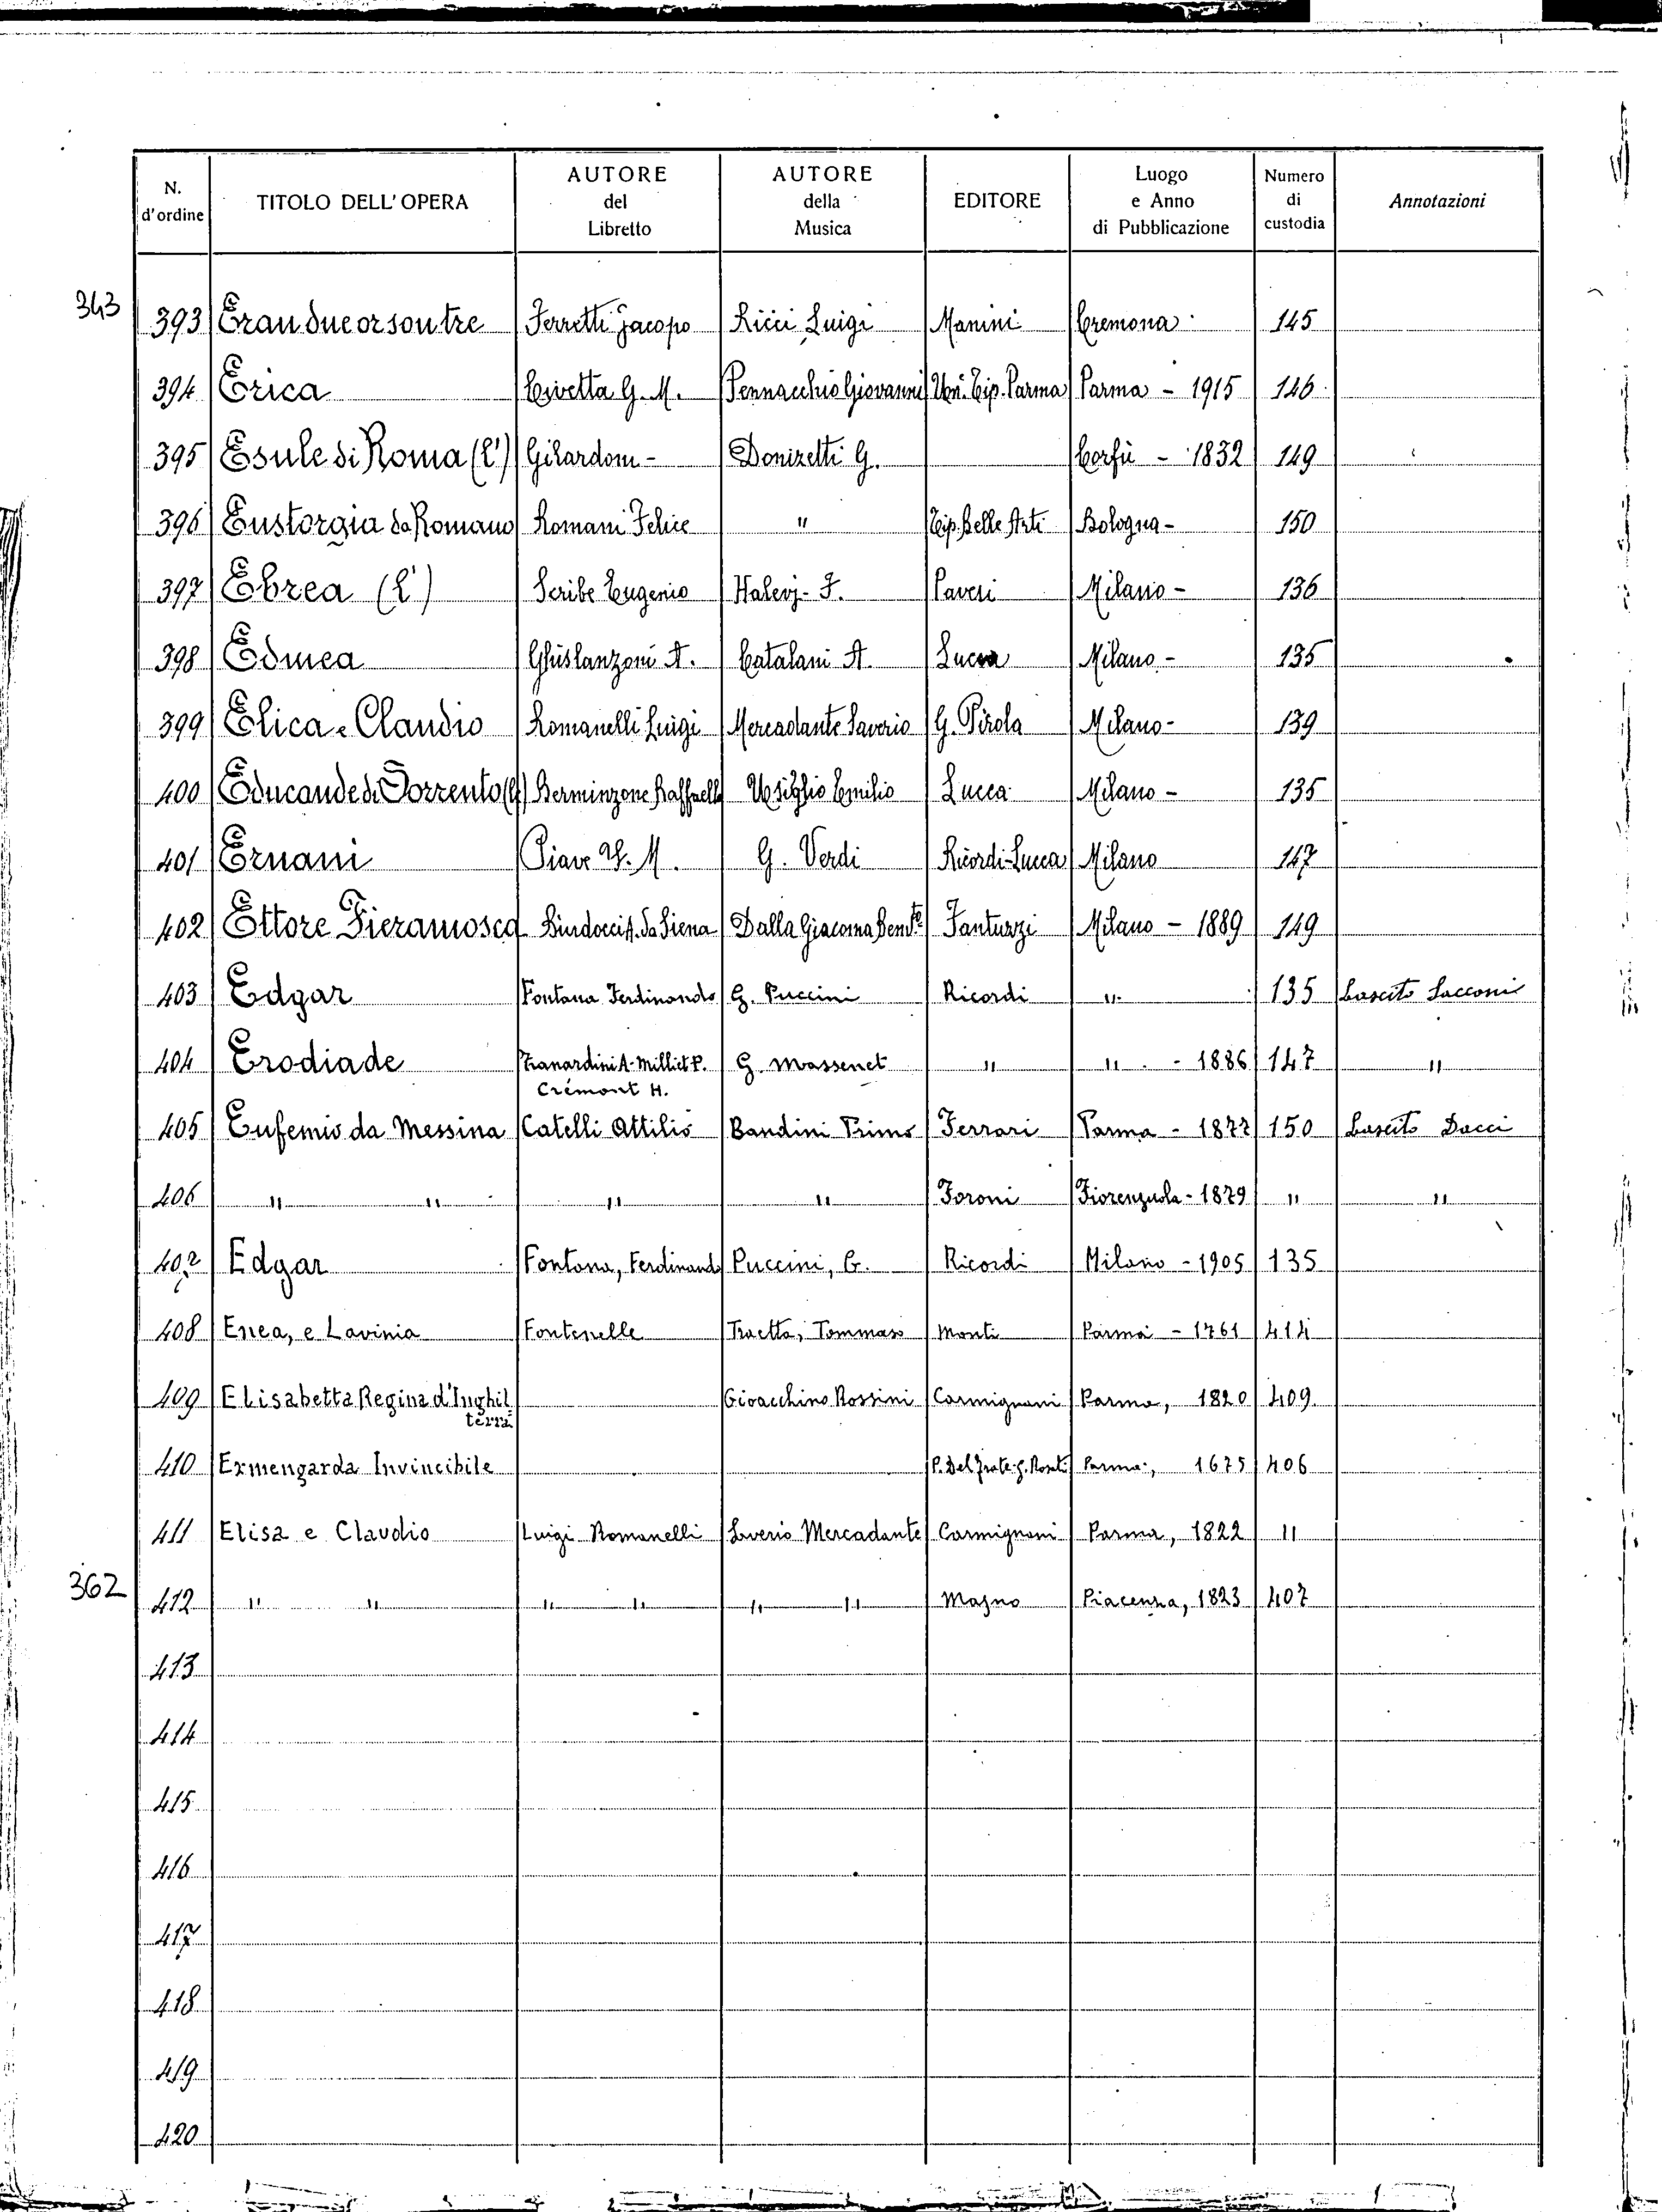 N. d'ordine TITOLO DELL'OPERA AUTORE del Libretto AUTORE della Musica EDITORE Luogo e Anno di Pubblicazione Numero di custodia Annotazioni
343 393 Eran due or son tre Ferretti Jacopo Ricci Luigi Manini Cremona 145
394 Erica Civetta G. M. Pennacchio Giovanni Un. Tip. Parma Parma - 1915 146
395 Esule di Roma (L') Gilardoni - Donizetti G. Corfù - 1832 149
396 Eustorgia da Romano Romani Felice " Tip. Belle Arti Bologna - 150
397 Ebrea (L') Scribe Eugenio Halevj - F. Paveri Milano - 136
398 Edmea Ghislanzoni A. Catalani A. Lucca Milano - 135
399 Elica - Claudio Romanelli Luigi Mercadante Saverio G. Pirola Milano - 139
400 Educande di Sorrento (Le) Berninzone Raffaello Usiglio Emilio Lucca Milano - 135
401 Ernani Piave F. M. G. Verdi Ricordi-Lucca Milano 147
402 Ettore Fieramosca Bindocci A. da Siena Dalla Giacoma Fantuzzi Milano - 1889 149
403 Edgar Fontana Ferdinando G. Puccini Ricordi " 135 Lascito Sacconi
404 Erodiade Zanardini A. Milliet P. G. Massenet " " - 1886 147 "
Crémont H.
405 Eufemio da Messina Catelli Attilio Bandini Primo Ferrari Parma - 1877 150 Lascito Dacci
406 " " " " Foroni Fiorenzuola - 1879 " "
407 Edgar Fontana, Ferdinando Puccini, G. Ricordi Milano - 1905 135
408 Enea, e Lavinia Fontenelle Traetta, Tommaso Monti Parma - 1761 414
409 Elisabetta Regina d'Inghil Gioacchino Rossini Carmignani Parma, 1820 409
terra
410 Ermengarda Invincibile Parma, 1675 406
411 Elisa e Claudio Luigi Romanelli Saverio Mercadante Carmignani Parma, 1822 "
362 412 " " " " " " Majno Piacenza, 1823 407
413
414
415
416
417
418
419
420